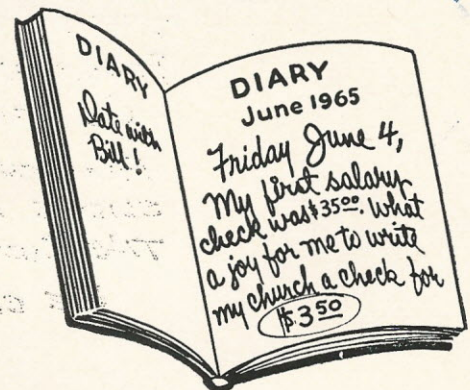 DIARY
Date with
Bill!
DIARY
June 1965
Friday June 4,
My first salary
check was $35⁰⁰. What
a joy for me to write
my church a check for
$3⁵⁰